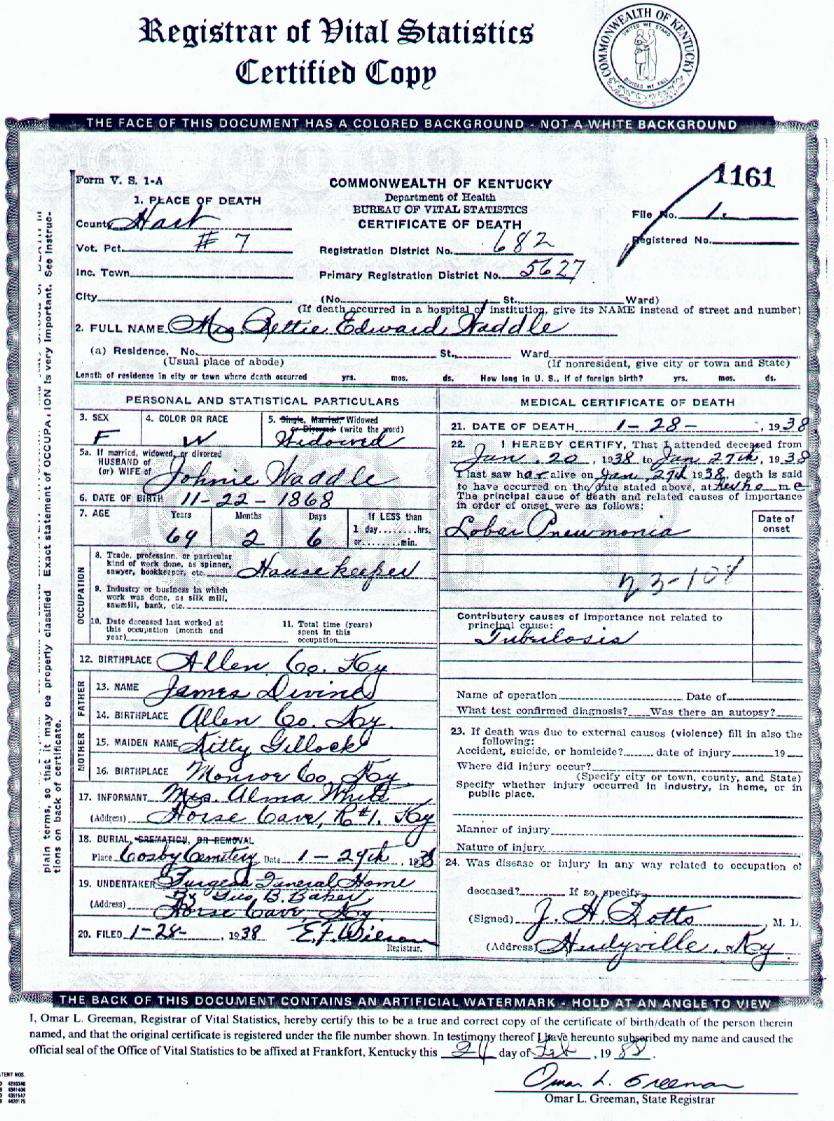 Registrar of Vital Statistics
Certified Copy
COMMONWEALTH OF KENTUCKY
UNITED WE STAND
DIVIDED WE FALL
THE FACE OF THIS DOCUMENT HAS A COLORED BACKGROUND - NOT A WHITE BACKGROUND
Form V. S. 1-A
1161
COMMONWEALTH OF KENTUCKY
Department of Health
BUREAU OF VITAL STATISTICS
CERTIFICATE OF DEATH
1. PLACE OF DEATH
County Hart
Vot. Pct. # 7
Inc. Town
City
File No. 1.
Registered No.
Registration District No. 682
Primary Registration District No. 5627
(No. St. Ward)
(If death occurred in a hospital or institution, give its NAME instead of street and number)
2. FULL NAME Mrs Bettie Edward Waddle
(a) Residence. No. St., Ward
(Usual place of abode) (If nonresident, give city or town and State)
Length of residence in city or town where death occurred yrs. mos. ds. How long in U. S., if of foreign birth? yrs. mos. ds.
PERSONAL AND STATISTICAL PARTICULARS
3. SEX F
4. COLOR OR RACE W
5. Single, Married, Widowed
or Divorced (write the word)
Widowed
5a. If married, widowed, or divorced
HUSBAND of
(or) WIFE of Johnie Waddle
6. DATE OF BIRTH 11-22-1868
7. AGE Years Months Days If LESS than
1 day hrs.
or min.
69 2 6
OCCUPATION
8. Trade, profession, or particular
kind of work done, as spinner,
sawyer, bookkeeper, etc. Housekeeper
9. Industry or business in which
work was done, as silk mill,
sawmill, bank, etc.
10. Date deceased last worked at
this occupation (month and
year)
11. Total time (years)
spent in this
occupation
12. BIRTHPLACE Allen Co. Ky
FATHER
13. NAME James Divine
14. BIRTHPLACE Allen Co. Ky.
MOTHER
15. MAIDEN NAME Kitty Gillock
16. BIRTHPLACE Monroe Co. Ky
17. INFORMANT Mrs. Alma White
(Address) Horse Cave, R#1. Ky
18. BURIAL, CREMATION, OR REMOVAL
Place Cosby Cemetery Date 1-29th, 1938
19. UNDERTAKER Funeral Home
By Gus B. Baker
(Address) Horse Cave, Ky.
20. FILED 1-28-, 1938 E.F. Wilson
Registrar.
MEDICAL CERTIFICATE OF DEATH
21. DATE OF DEATH 1-28-, 1938
22. I HEREBY CERTIFY, That I attended deceased from
Jan. 20, 1938 to Jan. 27th, 1938
I last saw her alive on Jan. 27th 1938, death is said
to have occurred on the date stated above, at m.
The principal cause of death and related causes of importance
in order of onset were as follows:
Date of
onset
Lobar Pneumonia
23-108
Contributory causes of importance not related to
principal cause:
Tubulosis
Name of operation Date of
What test confirmed diagnosis? Was there an autopsy?
23. If death was due to external causes (violence) fill in also the
following:
Accident, suicide, or homicide? date of injury 19
Where did injury occur?
(Specify city or town, county, and State)
Specify whether injury occurred in industry, in home, or in
public place.
Manner of injury
Nature of injury
24. Was disease or injury in any way related to occupation of
deceased? If so, specify
(Signed) J. H. Botts, M. D.
(Address) Ky
plain terms, so that it may be properly classified. Exact statement of OCCUPATION is very important. See instruc-
tions on back of certificate.
THE BACK OF THIS DOCUMENT CONTAINS AN ARTIFICIAL WATERMARK - HOLD AT AN ANGLE TO VIEW
I, Omar L. Greeman, Registrar of Vital Statistics, hereby certify this to be a true and correct copy of the certificate of birth/death of the person therein
named, and that the original certificate is registered under the file number shown. In testimony thereof I have hereunto subscribed my name and caused the
official seal of the Office of Vital Statistics to be affixed at Frankfort, Kentucky this 24 day of Feb, 1988.
Omar L. Greeman
Omar L. Greeman, State Registrar